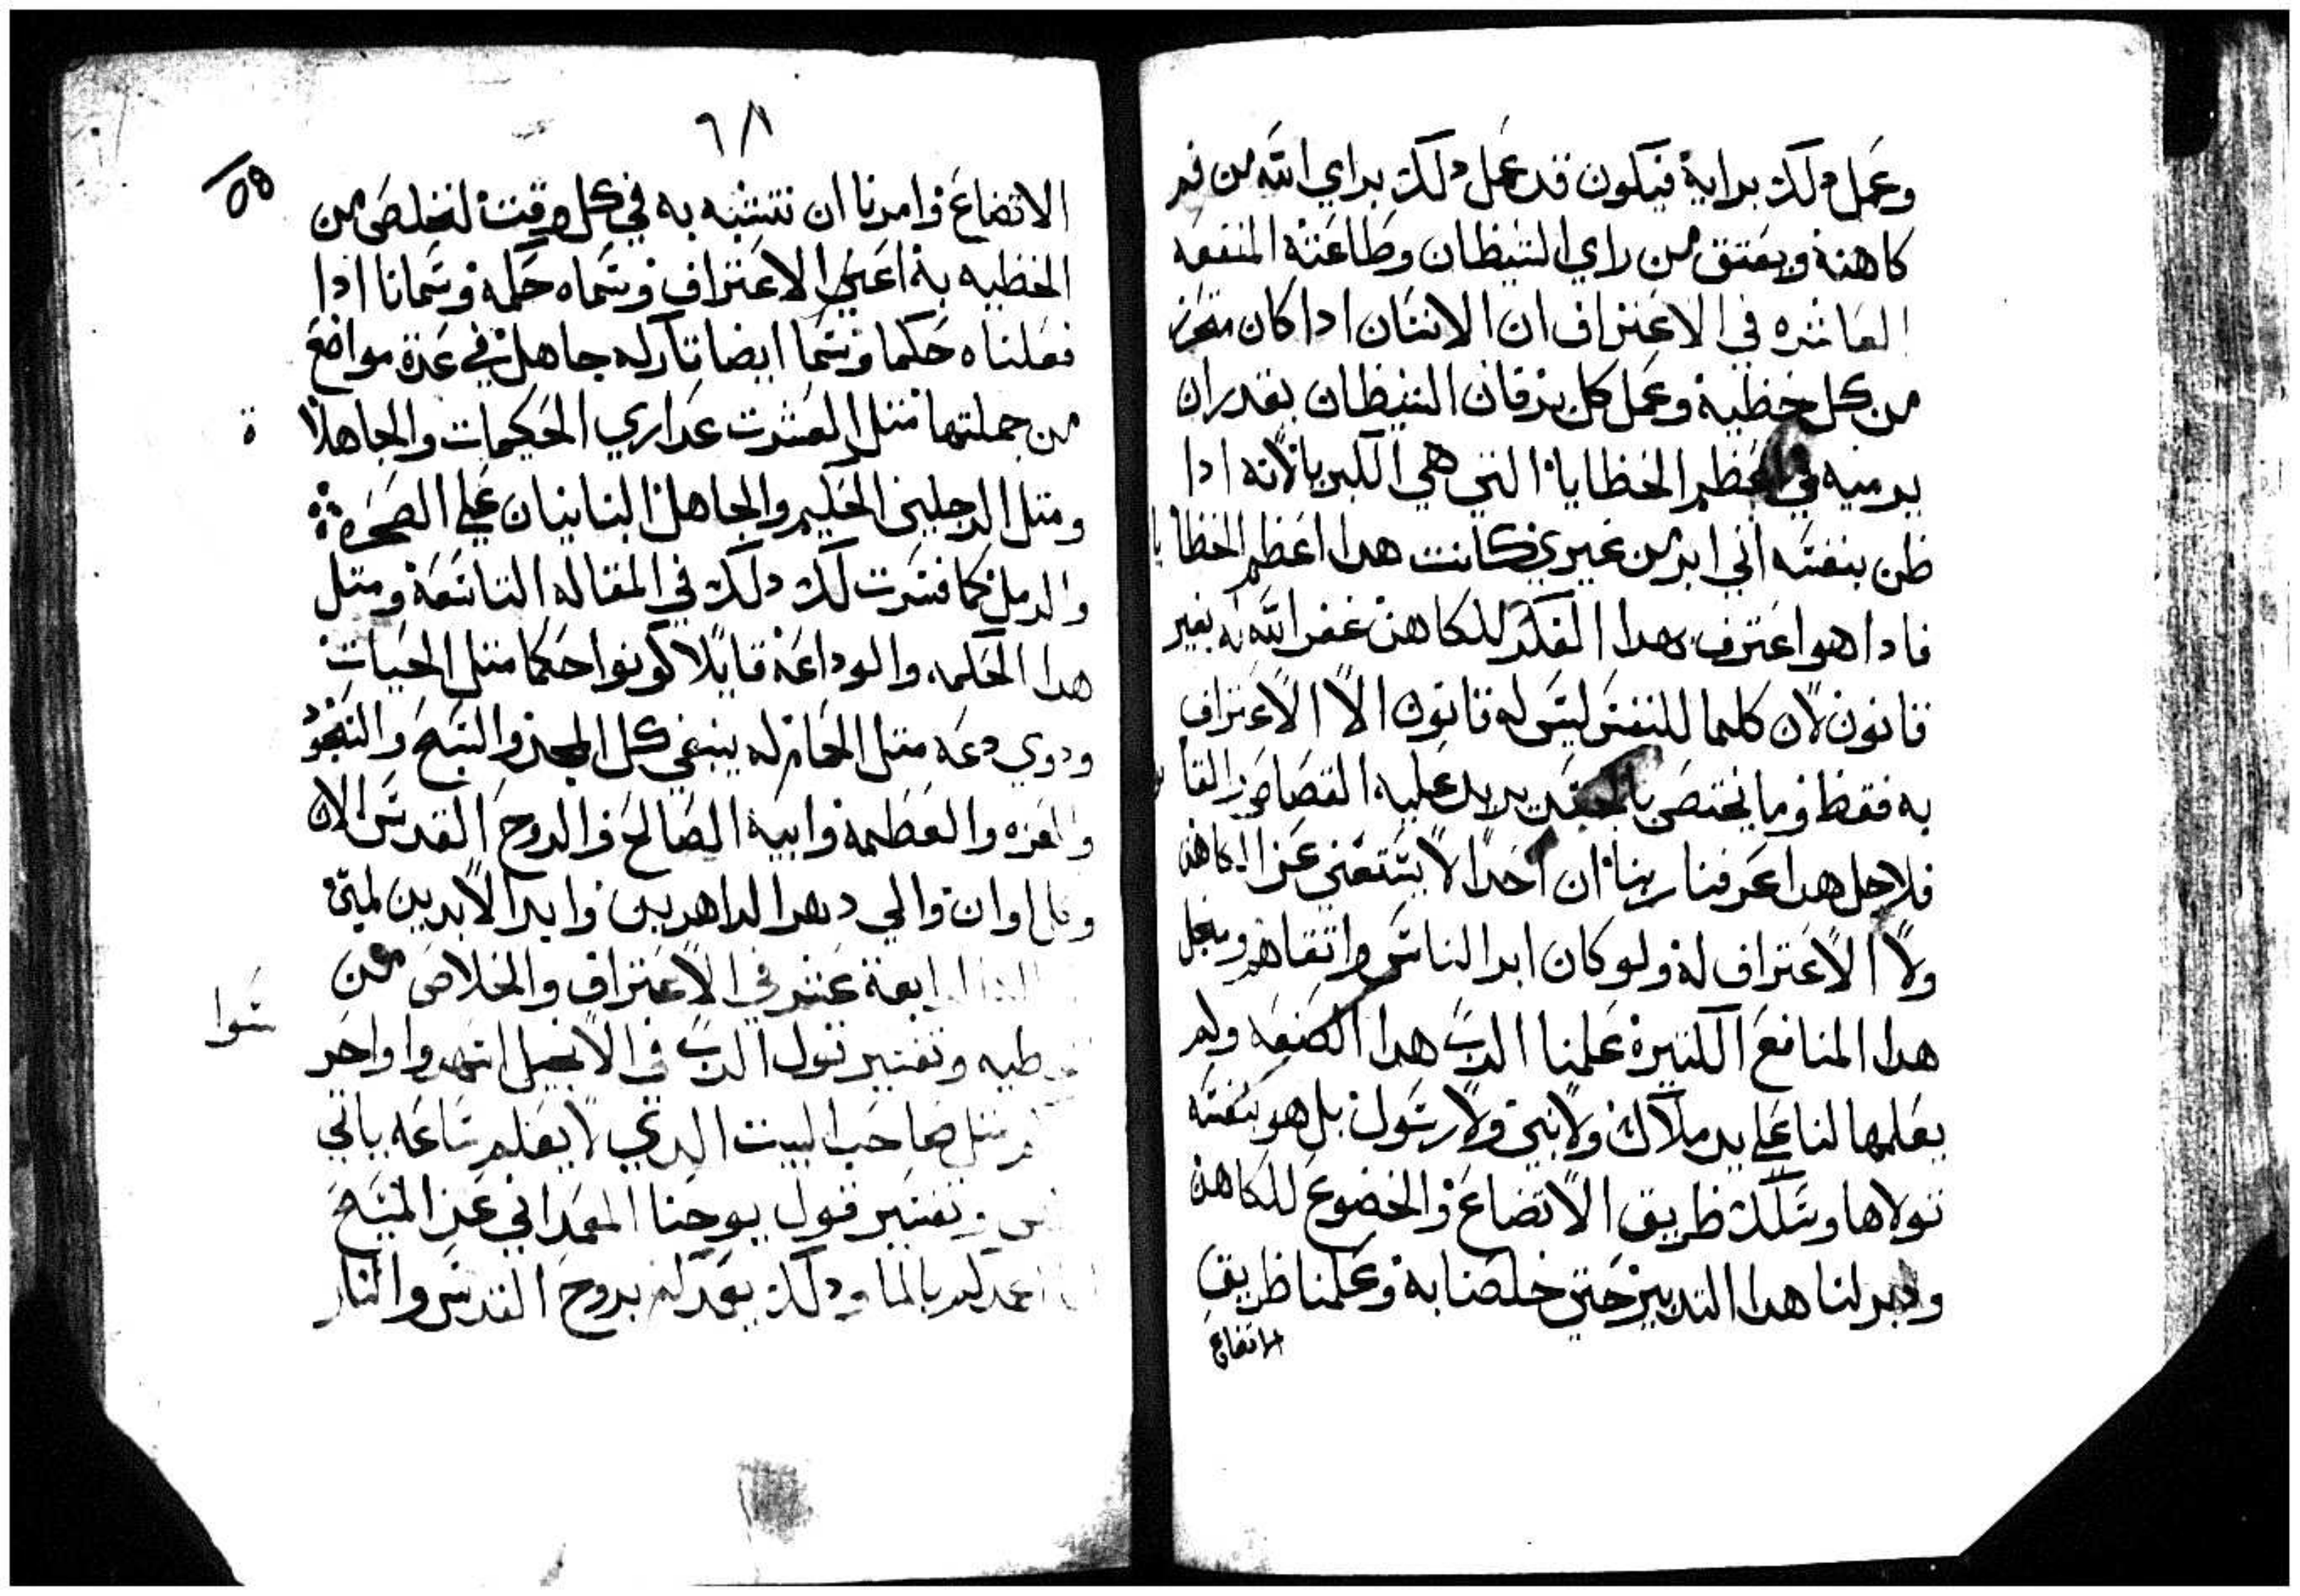 وعمل دلك برايه فيكون قد عمل دلك براي الله من فم
كاهنه ويعتق من راي الشيطان وطاعته المنفعه
العاشره في الاعتراف ان الانسان ادا كان متحرز
من كل خطيه وعمل كل بر فان الشيطان يقدر ان
يرميه في اعظم الخطايا التي هي الكبريا لانه ادا
ظن بنفسه اني ابر من غيري كانت هدا اعظم الخطايا
فادا هو اعترف بهدا الفكر للكاهن غفر الله له بغير
قانون لان كلما للنفس ليس له قانون الا الاعتراف
به فقط وما يختص بالجسد يريد عليه القصاص والقانون
فلاجل هدا عرفنا ربنا ان احدا لا يستغني عن الكاهن
ولا الاعتراف له ولو كان ابر الناس واتقاهم ومن اجل
هدا المنافع الكتيرة علمنا الرب هدا الصنعه ولم
يعلمها لنا علي يد ملاك ولا نبي ولا رسول بل هو بنفسه
تولاها وسلك طريق الاتضاع والخضوع للكاهن
ودبر لنا هدا التدبير حتي خلصنا به وعلمنا طريق
الاتضاع
٦٨
الاتضاع وامرنا ان نتشبه به في كل وقت لنخلص من
الخطيه به اعني الاعتراف وسماه حكمه وسمانا ادا
فعلناه حكما وسما ايضا تاركه جاهل في عدة مواضع
من جملتها متل العشرت عداري الحكيمات والجاهلا
ة
ومتل الرجلين الحكيم والجاهل البنايان علي الصخره
والرمل كما فسرت لك دلك في المقاله التاسعة ومتل
هدا الحكمه والوداعة قايلا كونوا حكما متل الحيات
ودوي دعه متل الحمام له ينبغي كل المجد والتسبح والسجود
والعزه والعظمه وابيه الصالح والروح القدس الان
وكل اوان والي دهر الداهرين وابد الابدين امين
الرابعة عشر في الاعتراف والخلاص من
وتفسير قول الرب في الانجيل اسهروا واحر
سوا
متل صاحب البيت الدي لا يعلم ساعه ياتي
وتفسير قول يوحنا المعمداني عن المسيح
اعمدكم بالما ودلك يعمدكم بروح القدس والنار